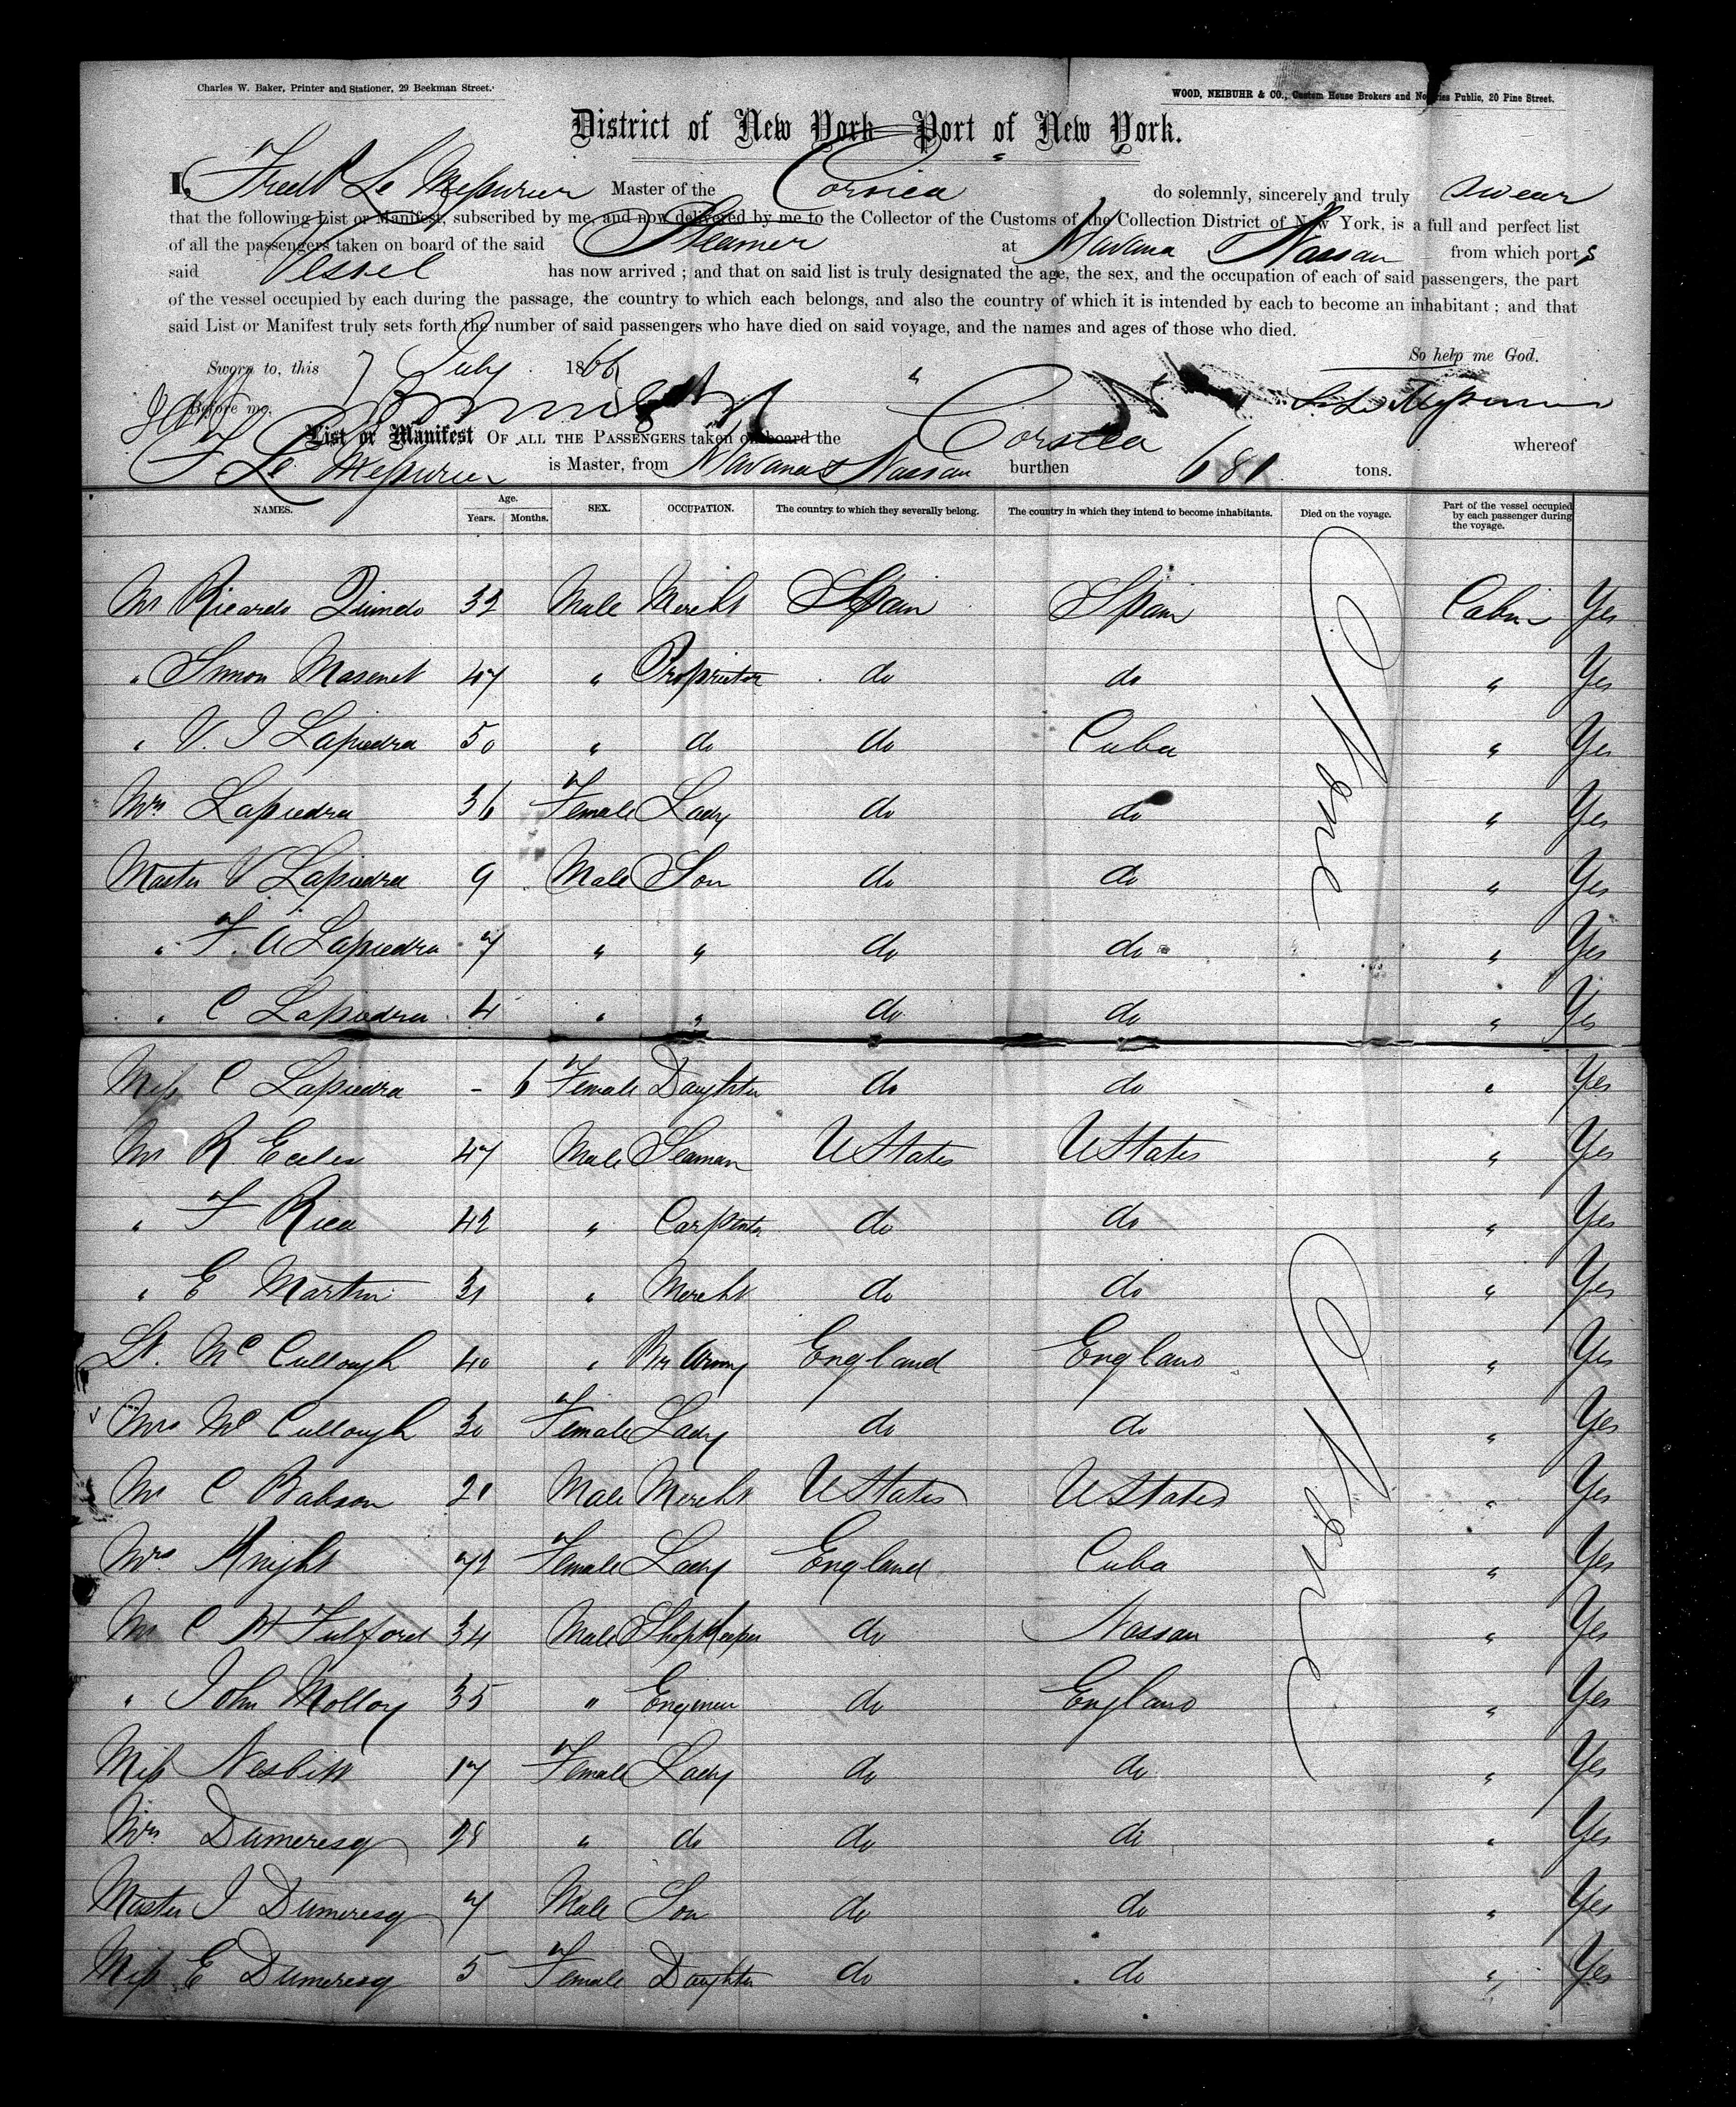 Charles W. Baker, Printer and Stationer, 29 Beekman Street.
WOOD, NEIBUHR & CO., Custom House Brokers and Notaries Public, 20 Pine Street.
District of New York—Port of New York.
I, Fredk Le Mesurier Master of the Corsica do solemnly, sincerely and truly swear
that the following List or Manifest, subscribed by me, and now delivered by me to the Collector of the Customs of the Collection District of New York, is a full and perfect list
of all the passengers taken on board of the said Steamer at Havana Nassau from which ports
said Vessel has now arrived ; and that on said list is truly designated the age, the sex, and the occupation of each of said passengers, the part
of the vessel occupied by each during the passage, the country to which each belongs, and also the country of which it is intended by each to become an inhabitant ; and that
said List or Manifest truly sets forth the number of said passengers who have died on said voyage, and the names and ages of those who died.
So help me God.
Sworn to, this July 1866
Before me,
List or Manifest OF ALL THE PASSENGERS taken on board the Corsica whereof
F Le Mesurier is Master, from Havana & Nassau burthen 681 tons.
NAMES. Age. Years. Months. SEX. OCCUPATION. The country to which they severally belong. The country in which they intend to become inhabitants. Died on the voyage. Part of the vessel occupied by each passenger during the voyage.
Mr Ricardo 32 Male Mercht Spain Spain Cabin Yes
" Simon Masenet 47 " Proprietor do do " Yes
" V. I Lapiedra 50 " do do Cuba " Yes
Mrs Lapiedra 36 Female Lady do do " Yes
Master V Lapiedra 9 Male Son do do " Yes
" F. A Lapiedra 7 " " do do " Yes
" C Lapiedra 4 " " do do " Yes
Miss C Lapiedra - 6 Female Daughter do do " Yes
Mr R Eccles 47 Male Seaman U States U States " Yes
" F Rice 42 " Carpenter do do " Yes
" E Martin 31 " Mercht do do " Yes
Lt. McCullough 40 " Br Army England England " Yes
Mrs McCullough 30 Female Lady do do " Yes
Mr C Babson 21 Male Mercht U States U States " Yes
Mrs Knight 72 Female Lady England Cuba " Yes
Mr C H Fulford 34 Male Shop Keeper do Nassau " Yes
" John Molloy 35 " Engineer do England " Yes
Miss Nesbitt 17 Female Lady do do " Yes
Mrs Dumeresq 28 " do do do " Yes
Master I Dumeresq 7 Male Son do do " Yes
Miss E Dumeresq 5 Female Daughter do do " Yes
None
None